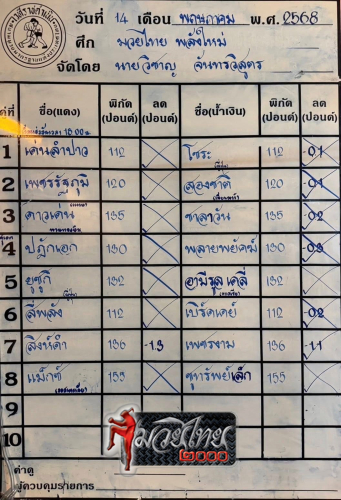 วันที่ 14 เดือน พฤษภาคม พ.ศ. 2568
ศึก มวยไทย พลังใหม่
จัดโดย นายวิชาญ จันทรวิสูตร
คู่ที่ ชื่อ(แดง) พิกัด (ปอนด์) ลด (ปอนด์) ชื่อ(น้ำเงิน) พิกัด (ปอนด์) ลด (ปอนด์)
1 แคนลำปาว 112 โชระ 112 -0.1
2 เพชรรัฐภูมิ 120 สองชาติ 120 -0.1
3 ดาวเด่น 135 ชาลาวัน 135 -0.2
4 ปฏักเอก 130 พลายพยัคฆ์ 130 -0.3
5 ยูซูกิ 132 อามีรุล เคลี่ 132
6 สี่พลัง 112 เบิร์ดเดย์ 112 -0.2
7 สิงห์ดำ 136 -1.3 เพชรงาม 136 -1.1
8 แม็กซ์ 155 ชูทรัพย์เล็ก 155
9
10
ค่าดู
ผู้ควบคุมรายการ
มวยไทย
๒๐๐๐